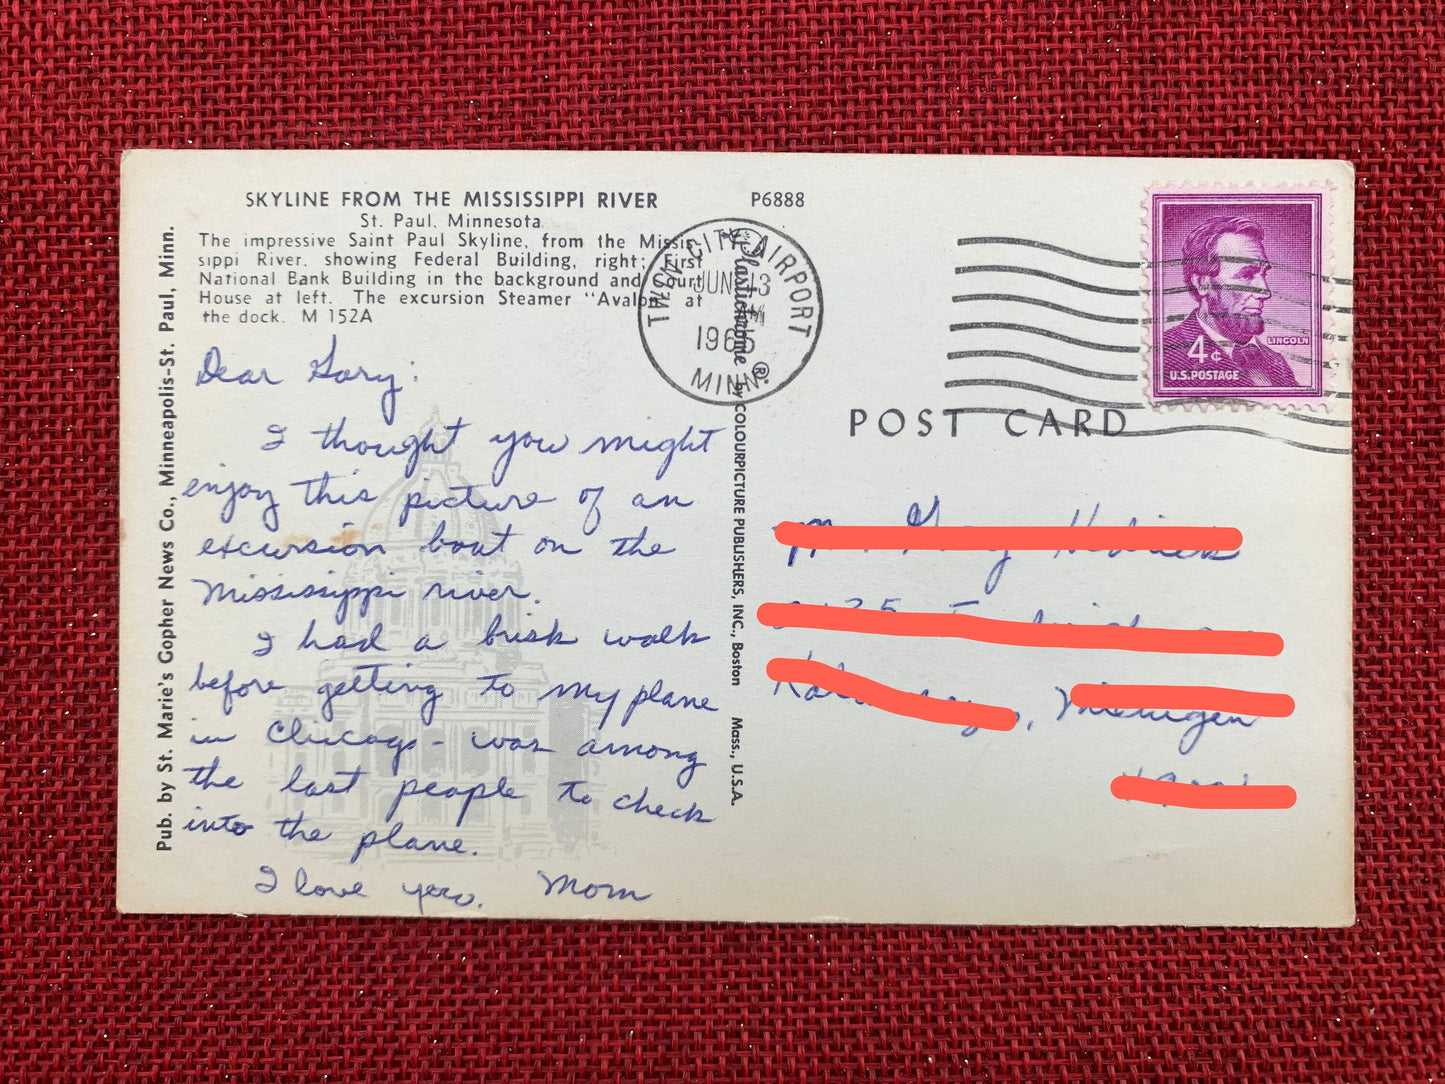 SKYLINE FROM THE MISSISSIPPI RIVER
P6888
St. Paul, Minnesota
The impressive Saint Paul Skyline, from the Missis-
sippi River, showing Federal Building, right; First
National Bank Building in the background and Court
House at left. The excursion Steamer "Avalon" at
the dock. M 152A
Pub. by St. Marie's Gopher News Co., Minneapolis-St. Paul, Minn.
Dear Gary:
I thought you might
enjoy this picture of an
excursion boat on the
Mississippi river.
I had a brisk walk
before getting to my plane
in Chicago - was among
the last people to check
into the plane.
I love you. Mom
Plastichrome ® by COLOURPICTURE PUBLISHERS, INC., Boston Mass., U.S.A.
TWIN CITY AIRPORT
JUN 13
PM
1966
MINN.
LINCOLN
4¢
U.S.POSTAGE
POST CARD